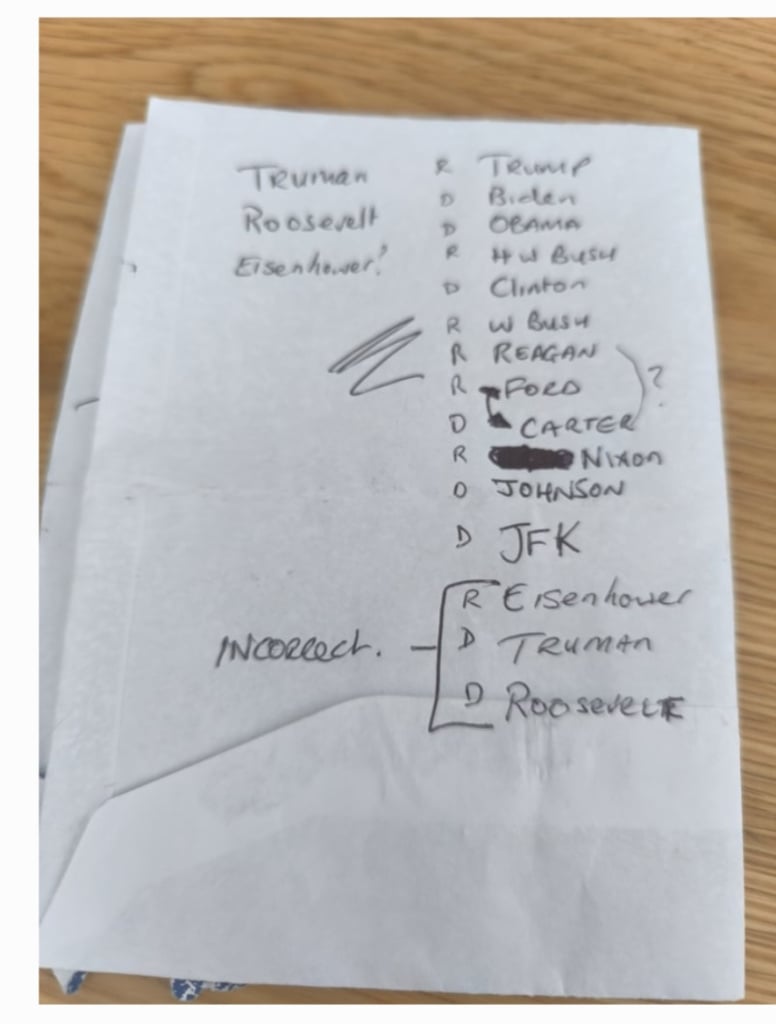 Truman
Roosevelt
Eisenhower?
R Trump
D Biden
D OBAMA
R H W BUSH
D Clinton
R W BUSH
R REAGAN
R FORD
?
D CARTER
R Nixon
D JOHNSON
D JFK
R Eisenhower
INCORRECT.
D TRUMAN
D Roosevelt